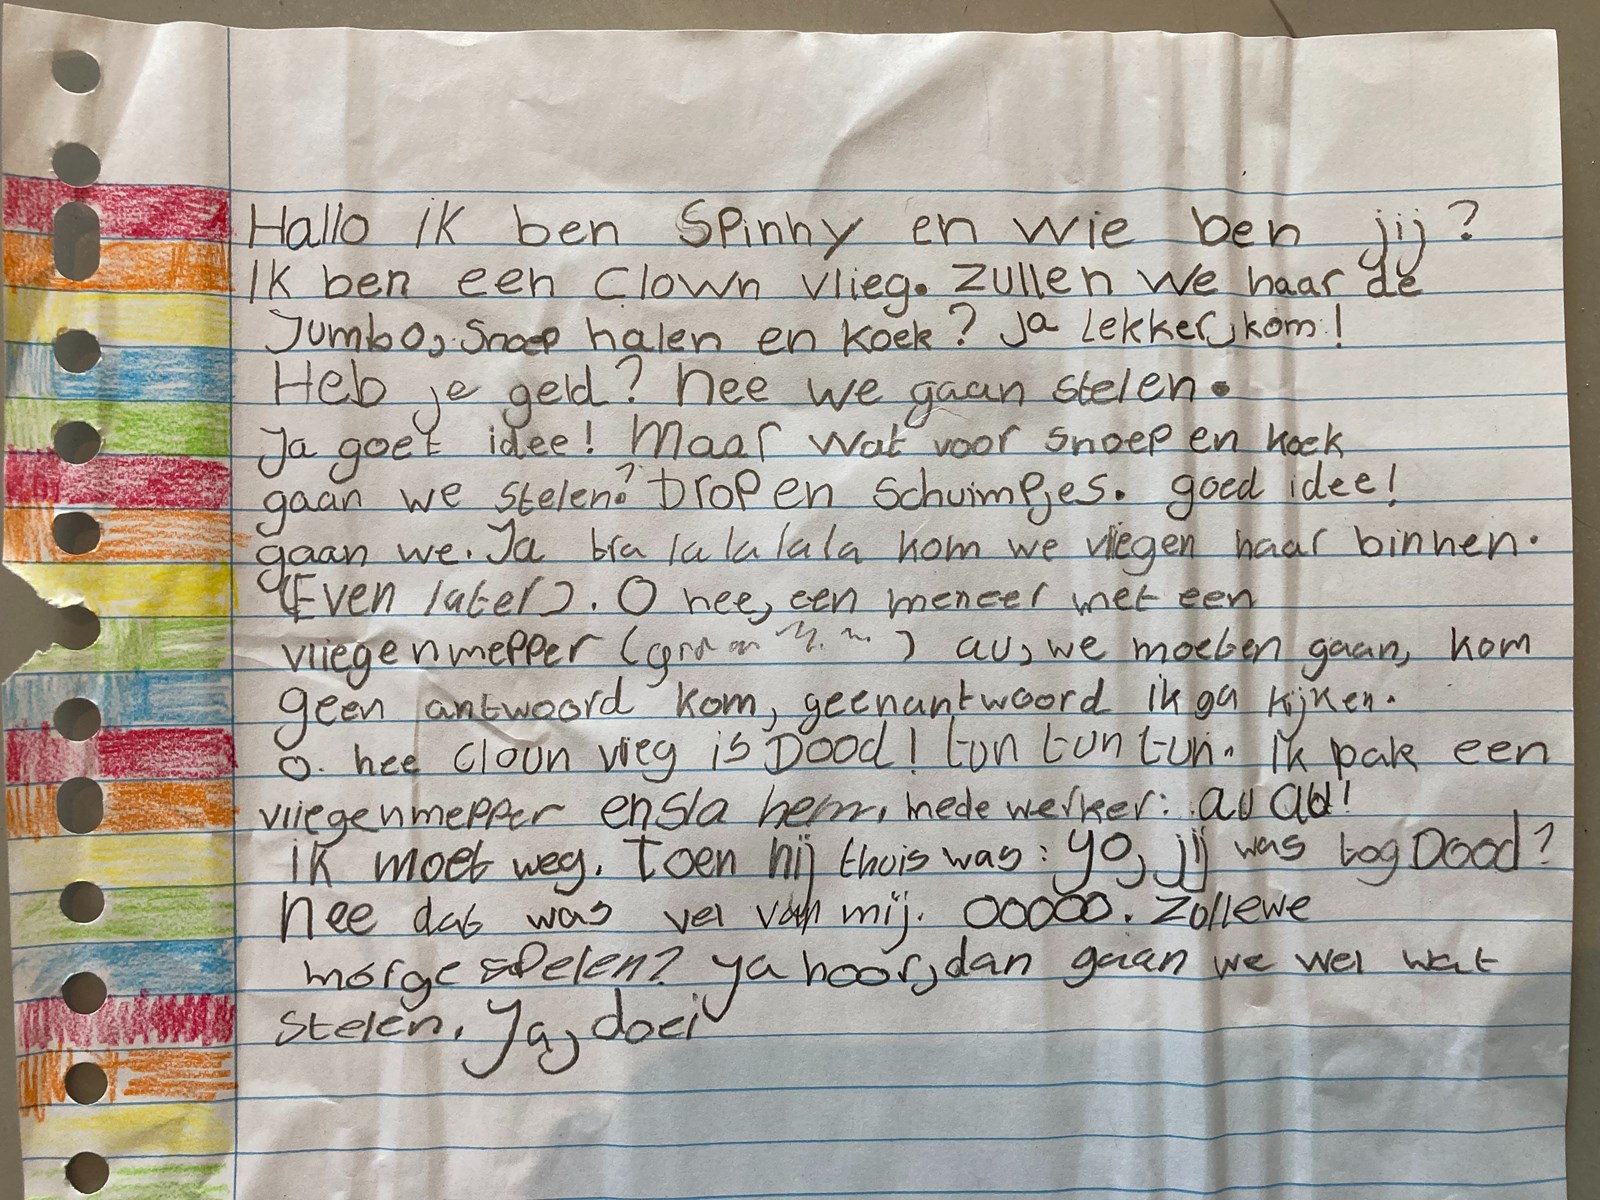 Hallo ik ben Spinny en wie ben jij?
Ik ben een Clown vlieg. Zullen we naar de
Jumbo, Snoep halen en koek? Ja Lekker, kom!
Heb je geld? Nee we gaan stelen.
Ja goet idee! Maar wat voor snoep en koek
gaan we stelen? Drop en Schuimpjes. goed idee!
gaan we. Ja tra la la la la kom we vliegen naar binnen.
(Even later). O nee, een meneer met een
vliegenmepper ( ) au, we moeten gaan, kom
geen antwoord kom, geenantwoord ik ga kijken.
O. nee Cloun vlieg is Dood! tun tun tun. Ik pak een
vliegenmepper en sla hem, mede werker: au au!
ik moet weg. Toen hij thuis was: yo, jij was tog Dood?
Nee dat was vel van mij. OOOOO. Zullewe
morge spelen? ya hoor, dan gaan we wel wat
stelen. Ja, doei